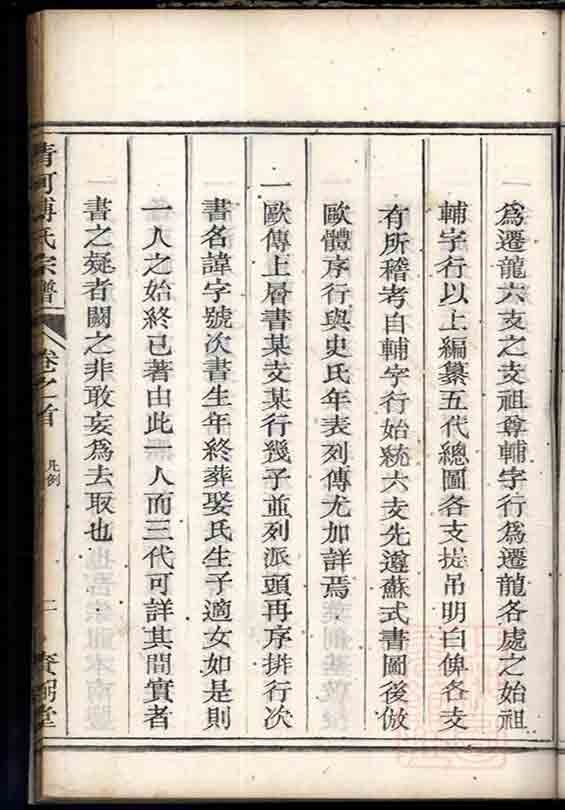 爲遷龍六支之支祖尊輔字行爲遷龍各處之始祖
輔字行以上編纂五代總圖各支提吊明白俾各支
有所稽考自輔字行始統六支先遵蘇式書圖後倣
歐體序行與史氏年表列傳尤加詳焉
一歐傳上層書某支某行幾子並列派頭再序排行次
書名諱字號次書生年終葬娶氏生子適女如是則
一人之始終已著由此一人而三代可詳其間實者
書之疑者闕之非敢妄爲去取也
清河傅氏宗譜 卷之首 凡例 二 堂